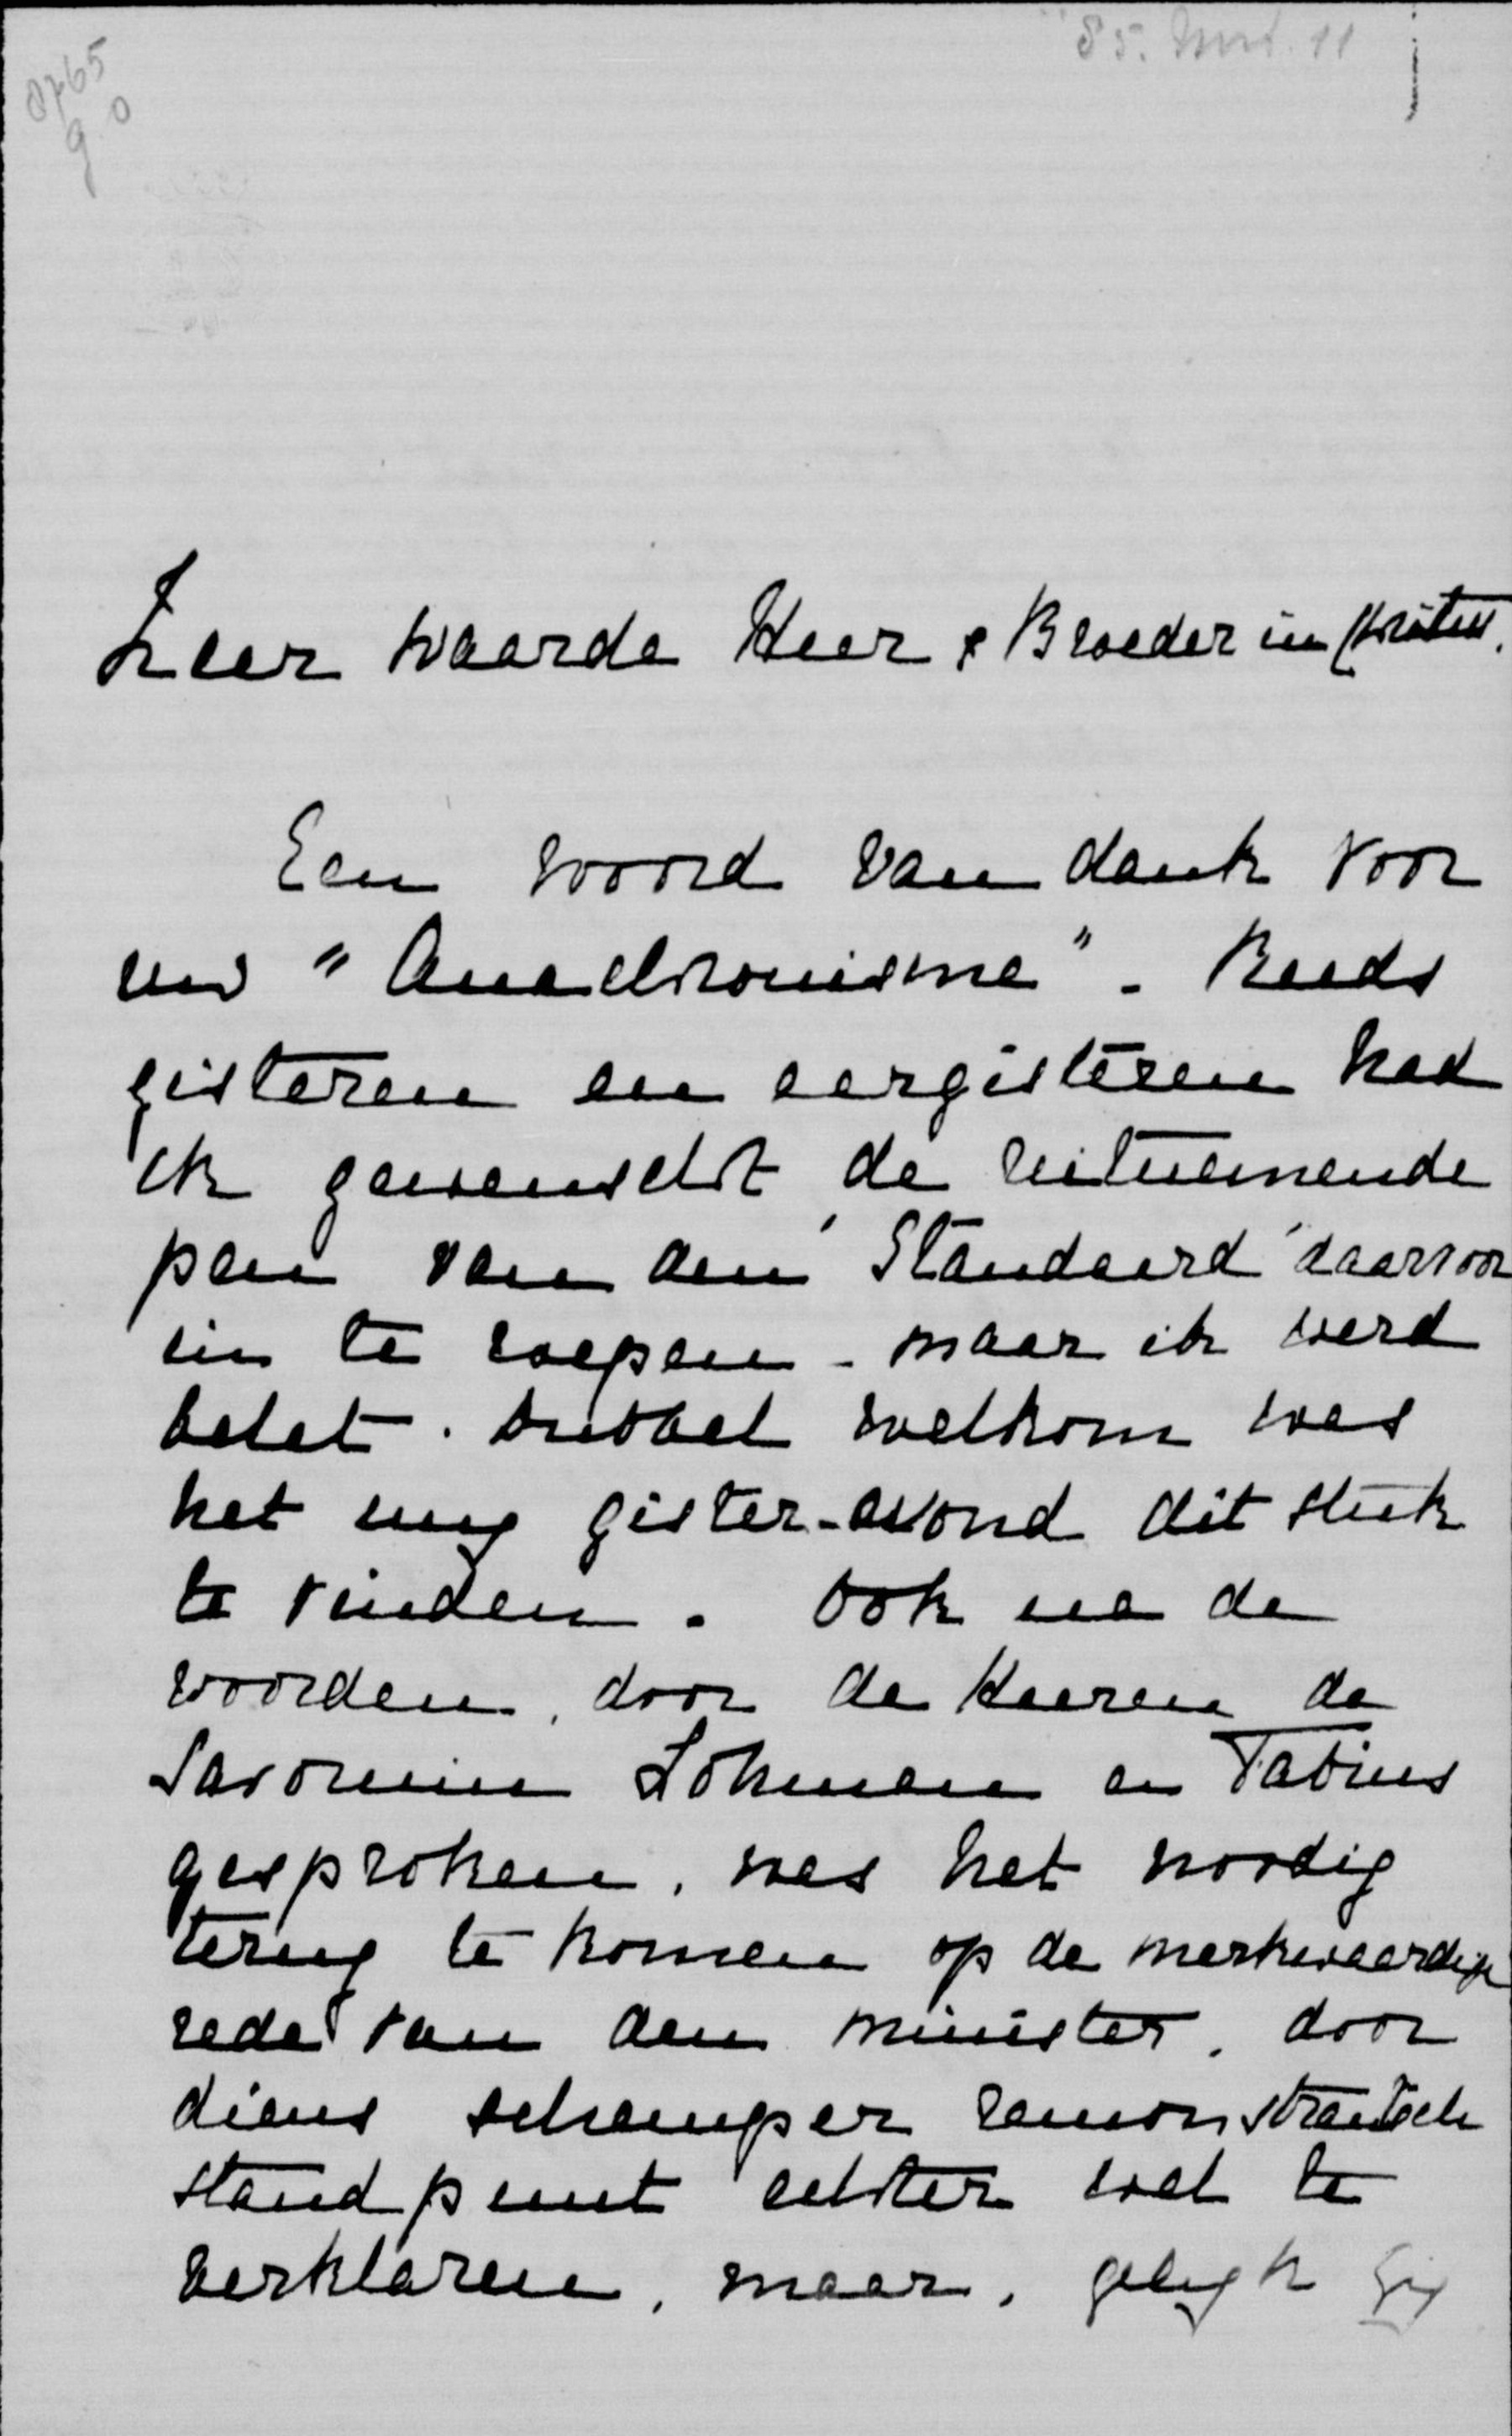 85. Nov. 11
0765
90
Zeer waarde Heer & Broeder in Christus.
Een woord van dank voor
uw "Anachronisme". Reeds
gisteren en eergisteren had
ik gewenscht de uitnemende
pen van den 'Standaard' daarvoor
in te roepen - maar ik werd
belet. Dubbel welkom was
het mij gister-avond dit stuk
te vinden. Ook na de
woorden, door de Heeren de
Savornin Lohman en Fabius
gesproken, was het noodig
terug te komen op de merkwaardige
rede van den minister, door
diens schamper remonstrantsch
standpunt echter wel te
verklaren, maar, gelijk Gij